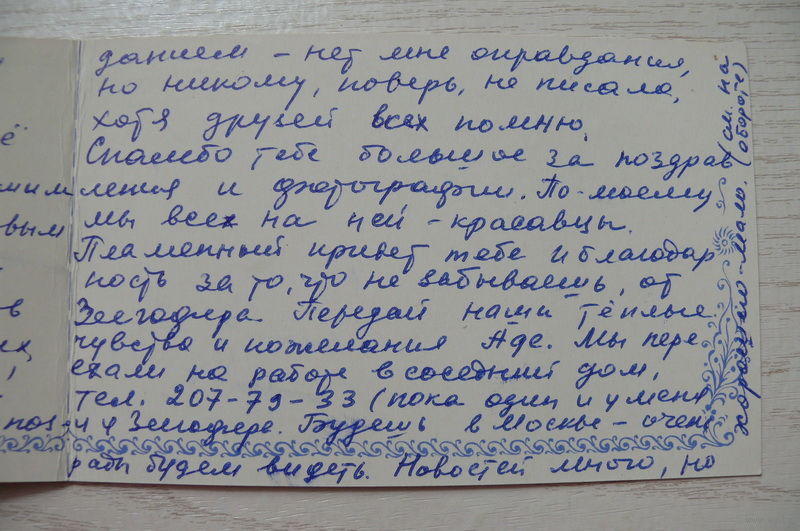 данием – нет мне оправдания,
но никому, поверь, не писала,
хотя друзей всех помню.
Спасибо тебе большое за поздрав
ления и фотографии. По-моему
мы все на ней – красавцы.
Пламенный привет тебе и благодар
ность за то, что не забываешь, от
Зеегофера. Передай наши тёплые
чувства и пожелания Аде. Мы пере
ехали на работе в соседний дом,
тел. 207-79-33 (пока один и у меня
и у Зеегофера. Будешь в Москве – очень
рады будем видеть. Новостей много, но
хорошего – мало. (см. на
обороте)
ё
мим
вым
в
их,
поз-